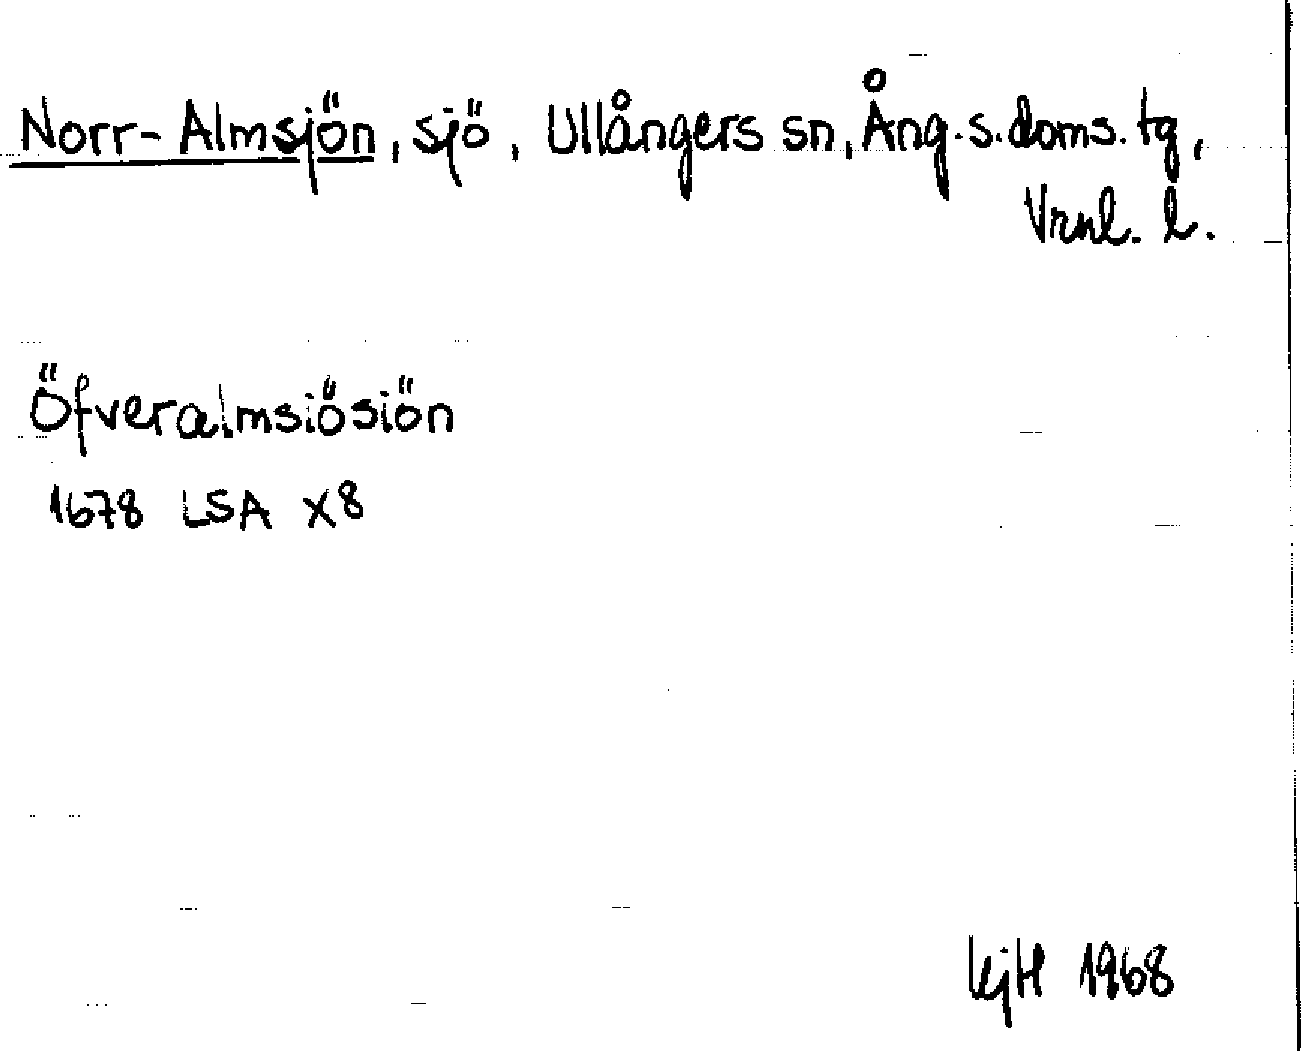 Norr-Almsjön, sjö, Ullångers sn, Ång. s. doms. tg,
Vrnl. l.
Öfveralmsiösiön
1678 LSA X8
KjH 1968